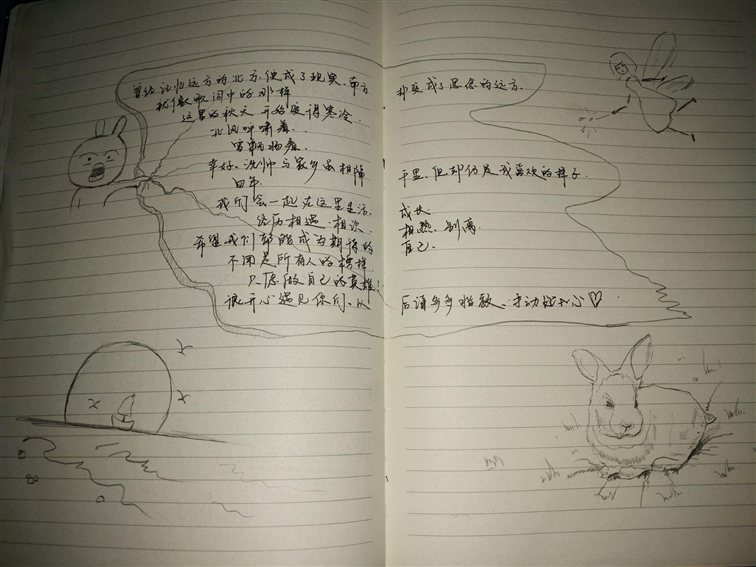 曾经记忆远方的北方,便成了现实,南方 却变成了思念的远方.
就像歌词中的那样
这里的秋天 开始变得寒冷
北风呼啸着.
雪飘扬着.
幸好,沈师与家乡虽相隔 千里,但却仍是我喜欢的样子.
四年
我们会一起在这里生活, 成长
经历相遇·相识 相熟、别离
希望我们都能成为期待的 自己.
不用是所有人的榜样
只愿做自己的英雄!
很开心遇见你们、以 后请多多指教,幸功加开心♡